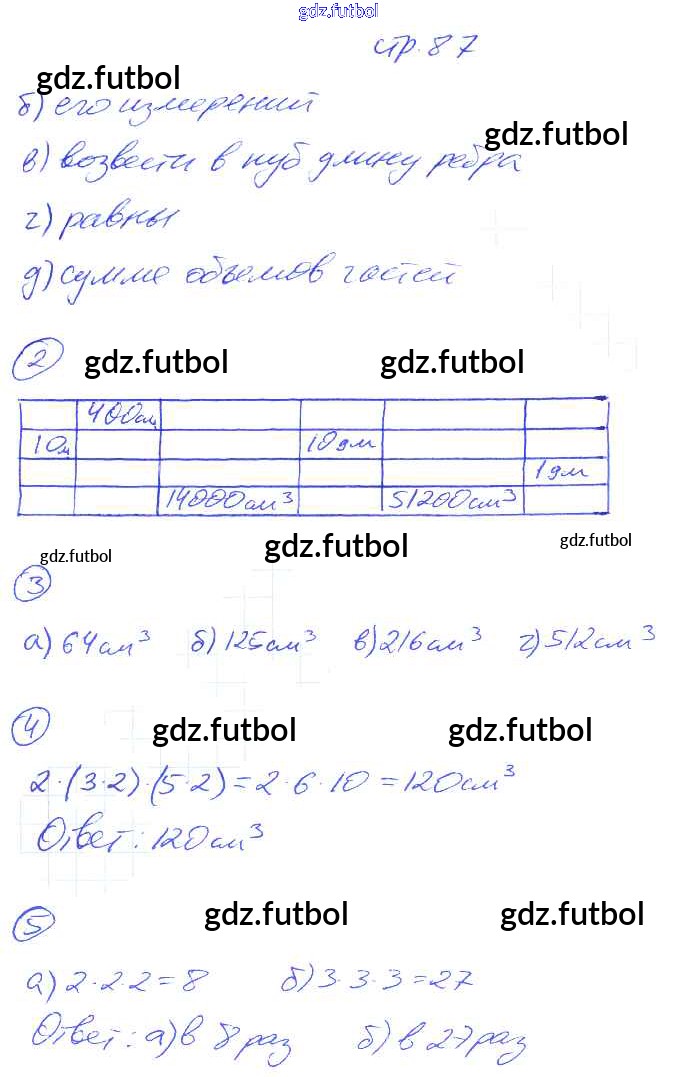 gdz.futbol
стр. 87
gdz.futbol
б) его измерений
gdz.futbol
в) возвести в куб длину ребра
г) равны
д) сумме объемов частей
2 gdz.futbol gdz.futbol
400см
10м 10дм
1дм
14000см³ 51200см³
gdz.futbol gdz.futbol gdz.futbol
3
а) 64см³ б) 125см³ в) 216см³ г) 512см³
4 gdz.futbol gdz.futbol
2·(3·2)·(5·2)=2·6·10=120см³
Ответ: 120см³
5 gdz.futbol gdz.futbol
а) 2·2·2=8 б) 3·3·3=27
Ответ: а) в 8 раз б) в 27 раз